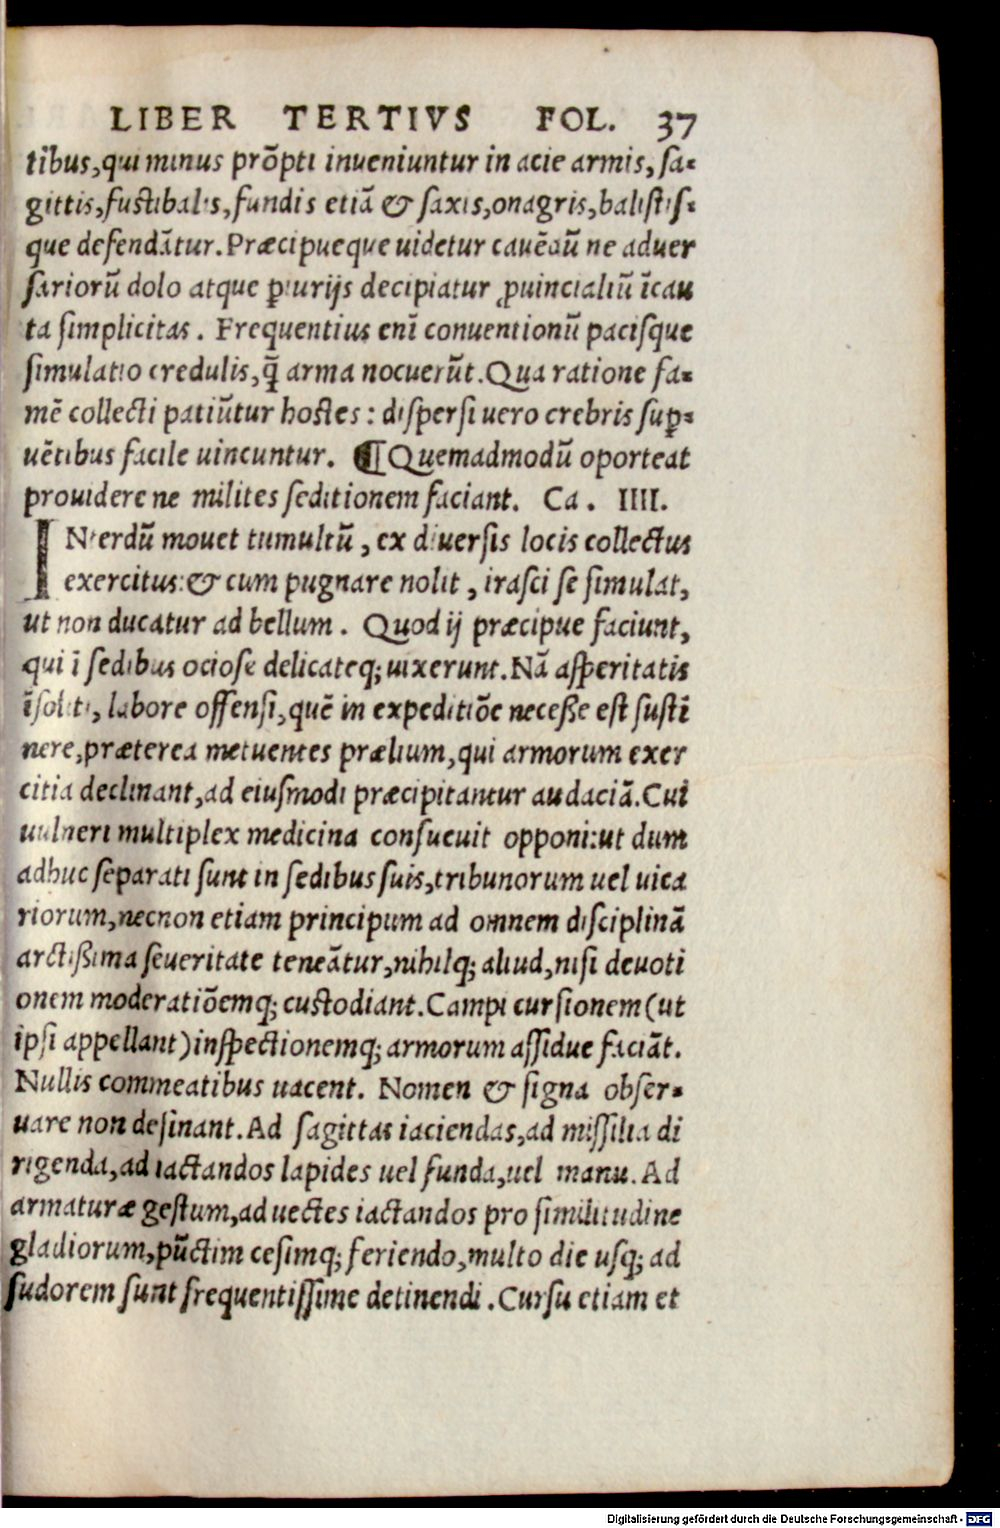 LIBER TERTIVS FOL. 37
tibus,qui minus prõpti inueniuntur in acie armis, sa-
gittis,fustibalis,fundis etiã & saxis,onagris,balistis-
que defendãtur. Præcipueque uidetur cauẽdũ ne aduer
sariorũ dolo atque ꝑiurijs decipiatur ꝓuincialiũ ĩcau
ta simplicitas. Frequentius enĩ conuentionũ pacisque
simulatio credulis,q̃ arma nocuerũt. Qua ratione fa-
mẽ collecti patiũtur hostes: dispersi uero crebris suꝑ-
uẽtibus facile uincuntur. ¶Quemadmodũ oporteat
prouidere ne milites seditionem faciant. Ca. IIII.
INterdũ mouet tumultũ, ex diuersis locis collectus
exercitus: & cum pugnare nolit, irasci se simulat,
ut non ducatur ad bellum. Quod ij præcipue faciunt,
qui ĩ sedibus ociose delicateq; uixerunt. Nã asperitatis
ĩsoliti, labore offensi,quẽ in expeditiõe neceße est sustĩ
nere,præterea metuentes prælium,qui armorum exer
citia declinant,ad eiusmodi præcipitantur audaciã. Cui
uulneri multiplex medicina consueuit opponi:ut dum
adhuc separati sunt in sedibus suis,tribunorum uel uica
riorum,necnon etiam principum ad omnem disciplinã
arctißima seueritate teneãtur,nihilq; aliud,nisi deuoti
onem moderatiõemq; custodiant. Campi cursionem (ut
ipsi appellant) inspectionemq; armorum assidue faciãt.
Nullis commeatibus uacent. Nomen & signa obser-
uare non desinant. Ad sagittas iaciendas,ad missilia di
rigenda,ad iactandos lapides uel funda,uel manu. Ad
armaturæ gestum,ad uectes iactandos pro similitudine
gladiorum,pũctim cesimq; feriendo,multo die usq; ad
sudorem sunt frequentissime detinendi. Cursu etiam et
Digitalisierung gefördert durch die Deutsche Forschungsgemeinschaft - DFG